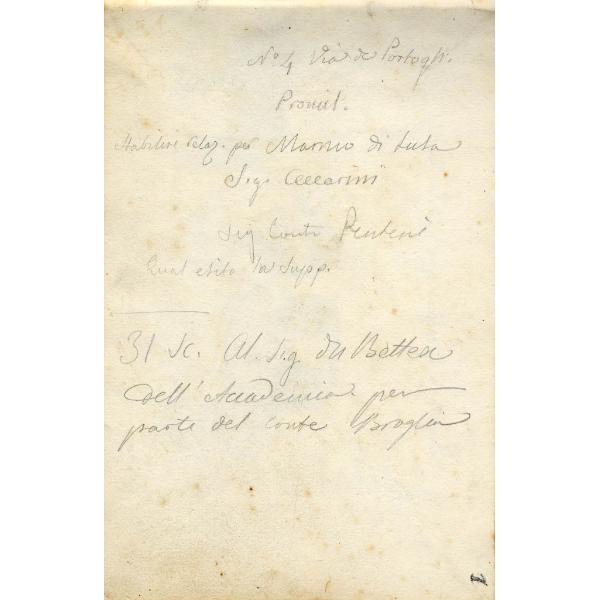 Nº 4 Via de Portogh.
Stabilire relaz. per Marmo di
Sig. Ceccarini
Sig Conte
Qual esito la supp.
31 Sc. Al Sig.
dell'Accademia per
parte del conte Broglia